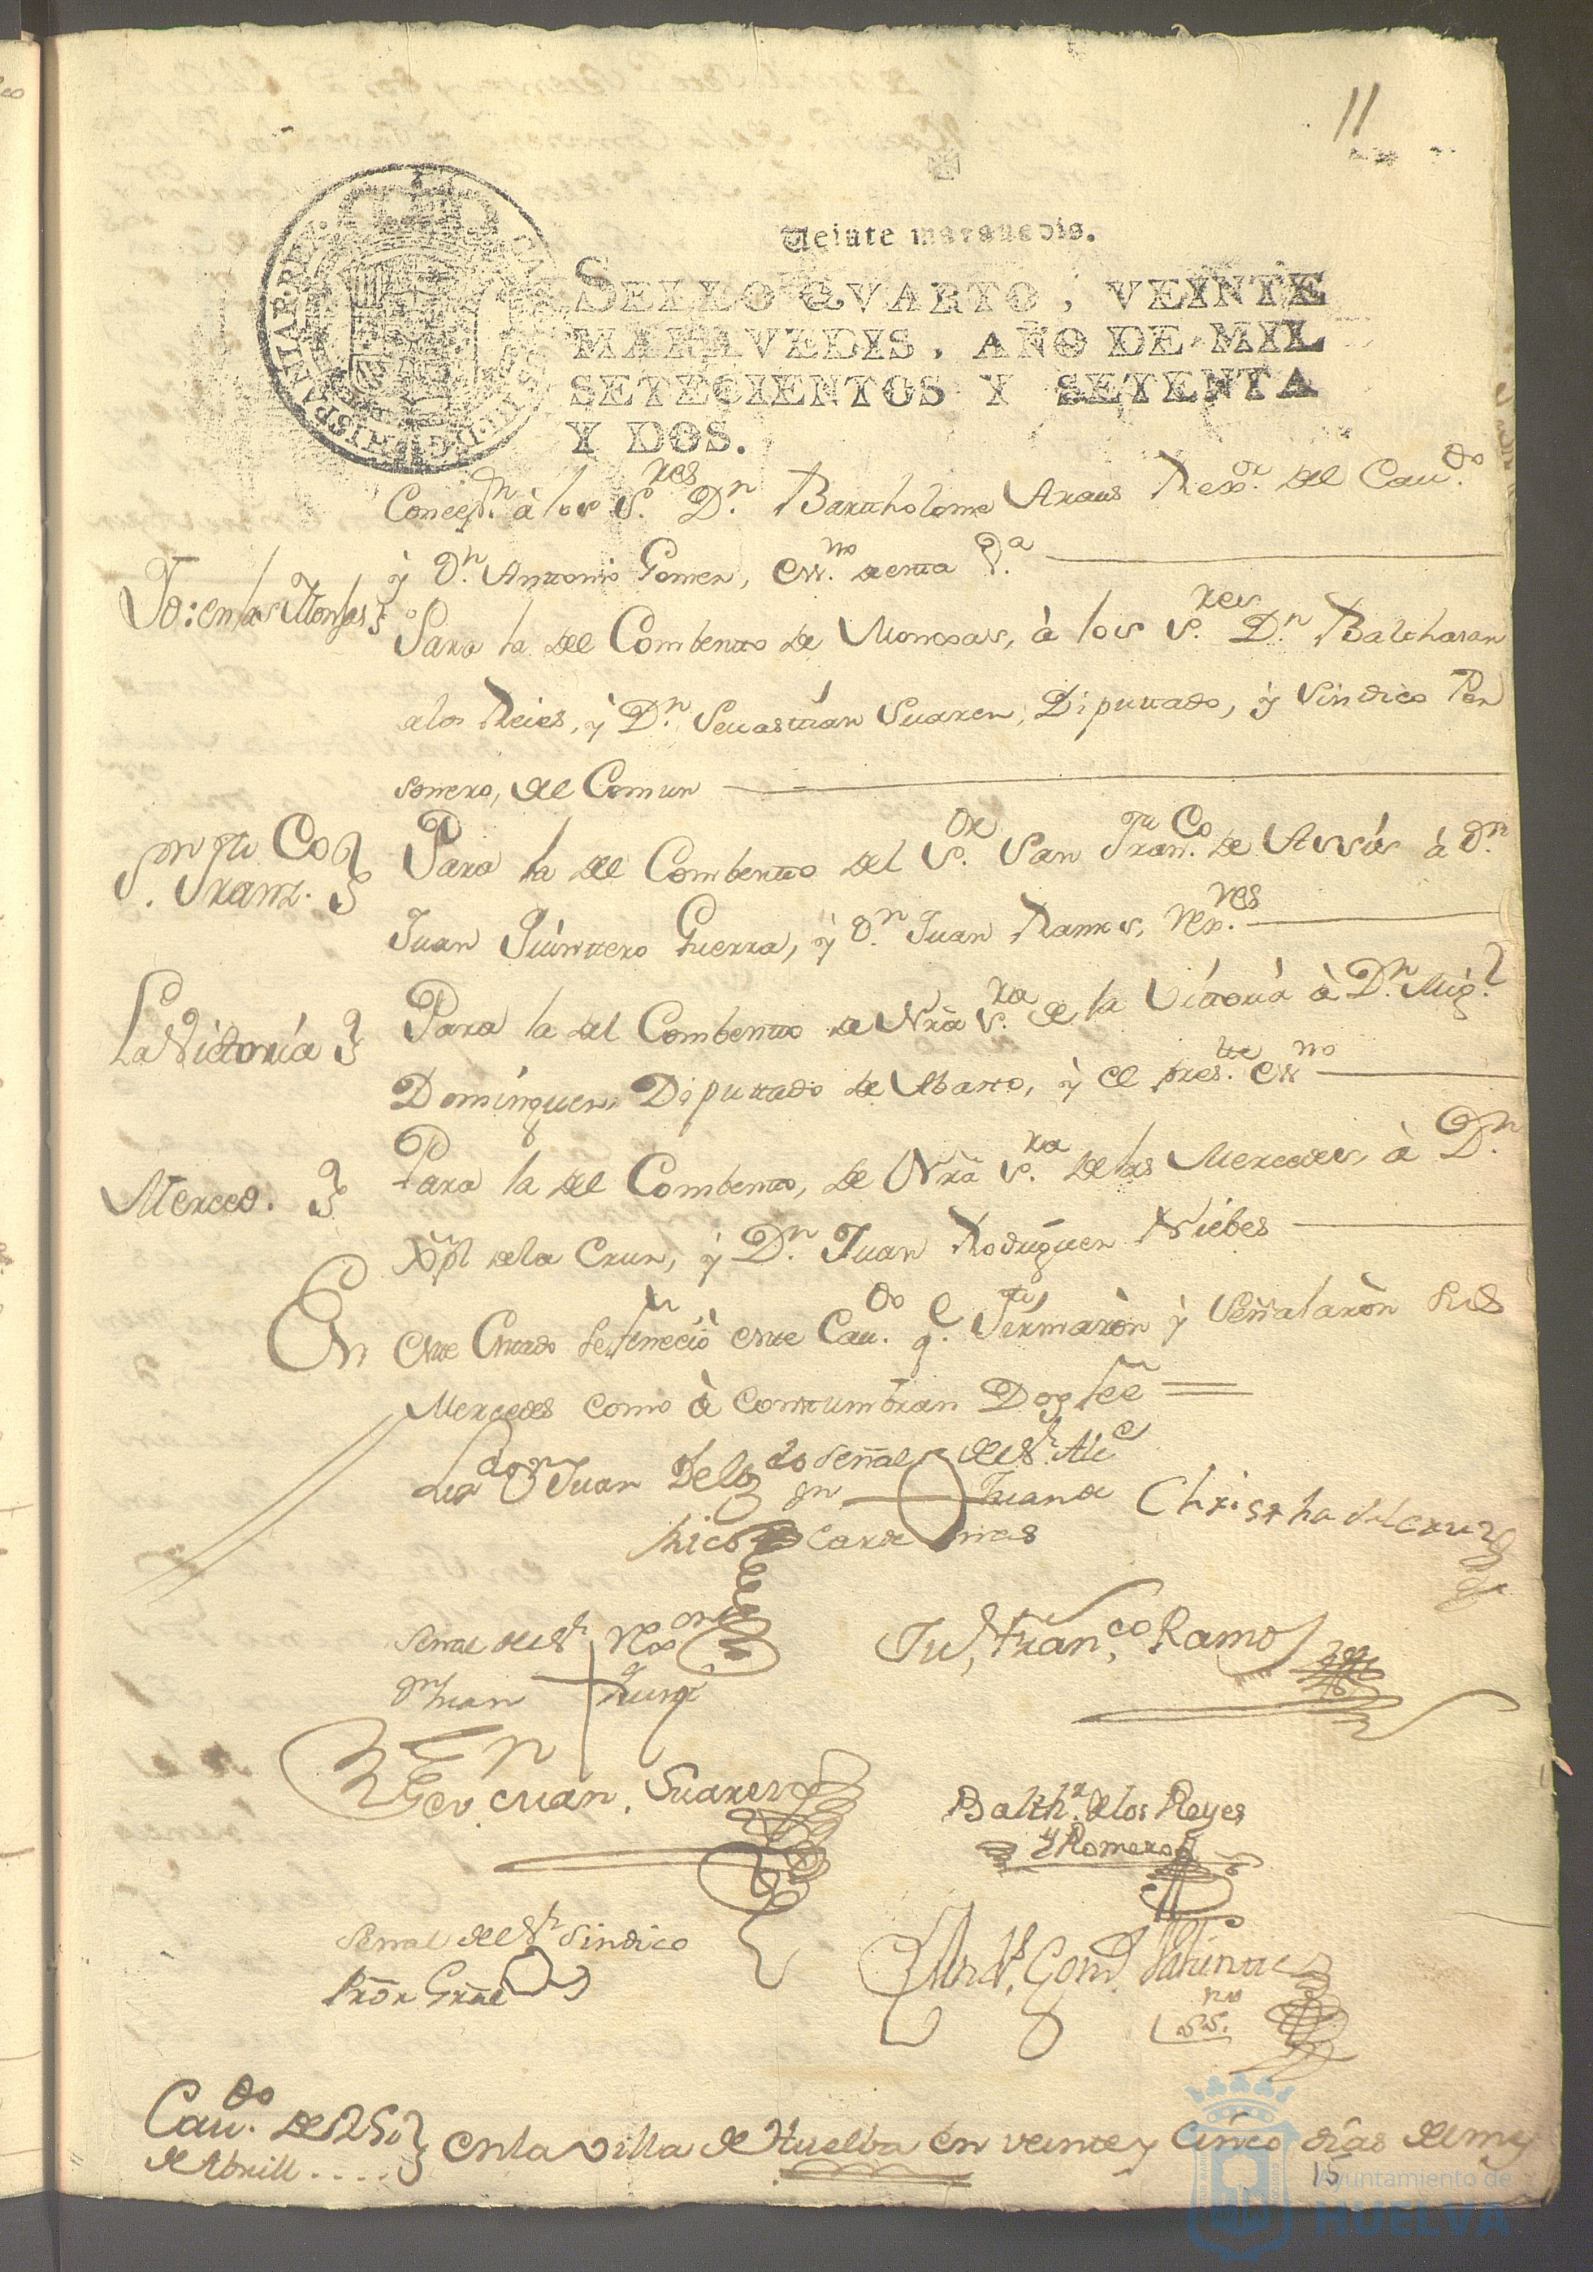 11
Veinte maravedis.
SELLO QVARTO, VEINTE
MARAVEDIS, AÑO DE MIL
SETECIENTOS Y SETENTA
Y DOS.
HISPANIAR. REX
Concep.n à los S.res D.n Bartholome Araus Rex.or del Cau.do
ÿ D.n Anttonio Gomez, Ess.no de esta V.a
Yd: en las Monjas
Para la del Combento de Monxas, à los S.res D.n Balthasar
de los Reies, ÿ D.n Sevastian Suarez, Diputtado, ÿ Sindico Per
sonero, del Comun
S.n Fran.co
Para la del Combentto del S.or San Fran.co de Assis à D.n
Juan Quinttero Guerra, ÿ D.n Juan Ramos, Rex.res
La Victoria
Para la del Combentto de Nrã S.ra de la Victoria à D.n Mig.l
Dominguez, Diputtado de Abasto, ÿ el pres.te Ess.no
Merced.
Para la del Combento, de Nrã S.ra de las Mercedes, à D.n
Xpl de la Cruz, ÿ D.n Juan Rodriguez Niebes
En este Estado se feneció este Cau.do q.e Firmaròn ÿ Señalaròn sus
Mercedes como à costtumbran Doy feé
Liz.do D.n Juan Delg.do
Señal del S.r Alc.e
D.n Juan de
Cardenas
Christ.l de la Cruz
Señal del S.r Rex.or
D.n Juan
Ju, Fran.co Ramos
Sevastian Suarez
Balth.r de los Reyes
y Romero
Señal del S.r Sindico
Prõr Grãl
Cau.do de 25
de Abrill....
en la villa de Huelba en veinte y Cinco dias del mes
15
Ayuntamiento de
HUELVA